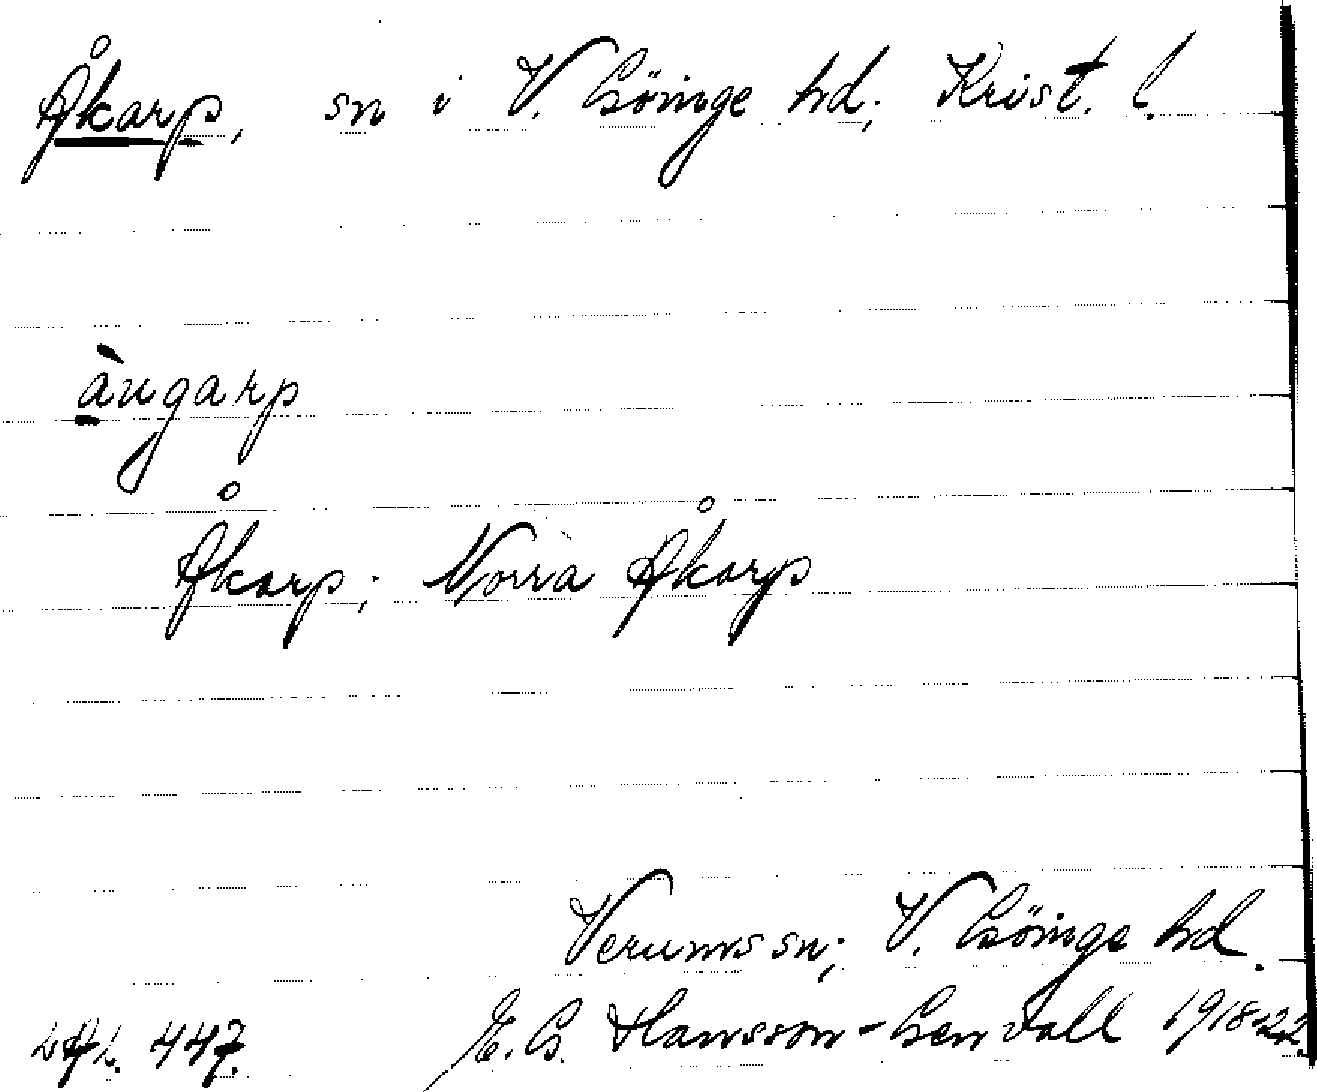 Åkarp, sn i V. Göinge hd; Krist. l.
àngarp
Åkarp; Norra Åkarp
Verums sn; V. Göinge hd.
LAL. 447. E. G. Hansson-Genvall 1918-22.